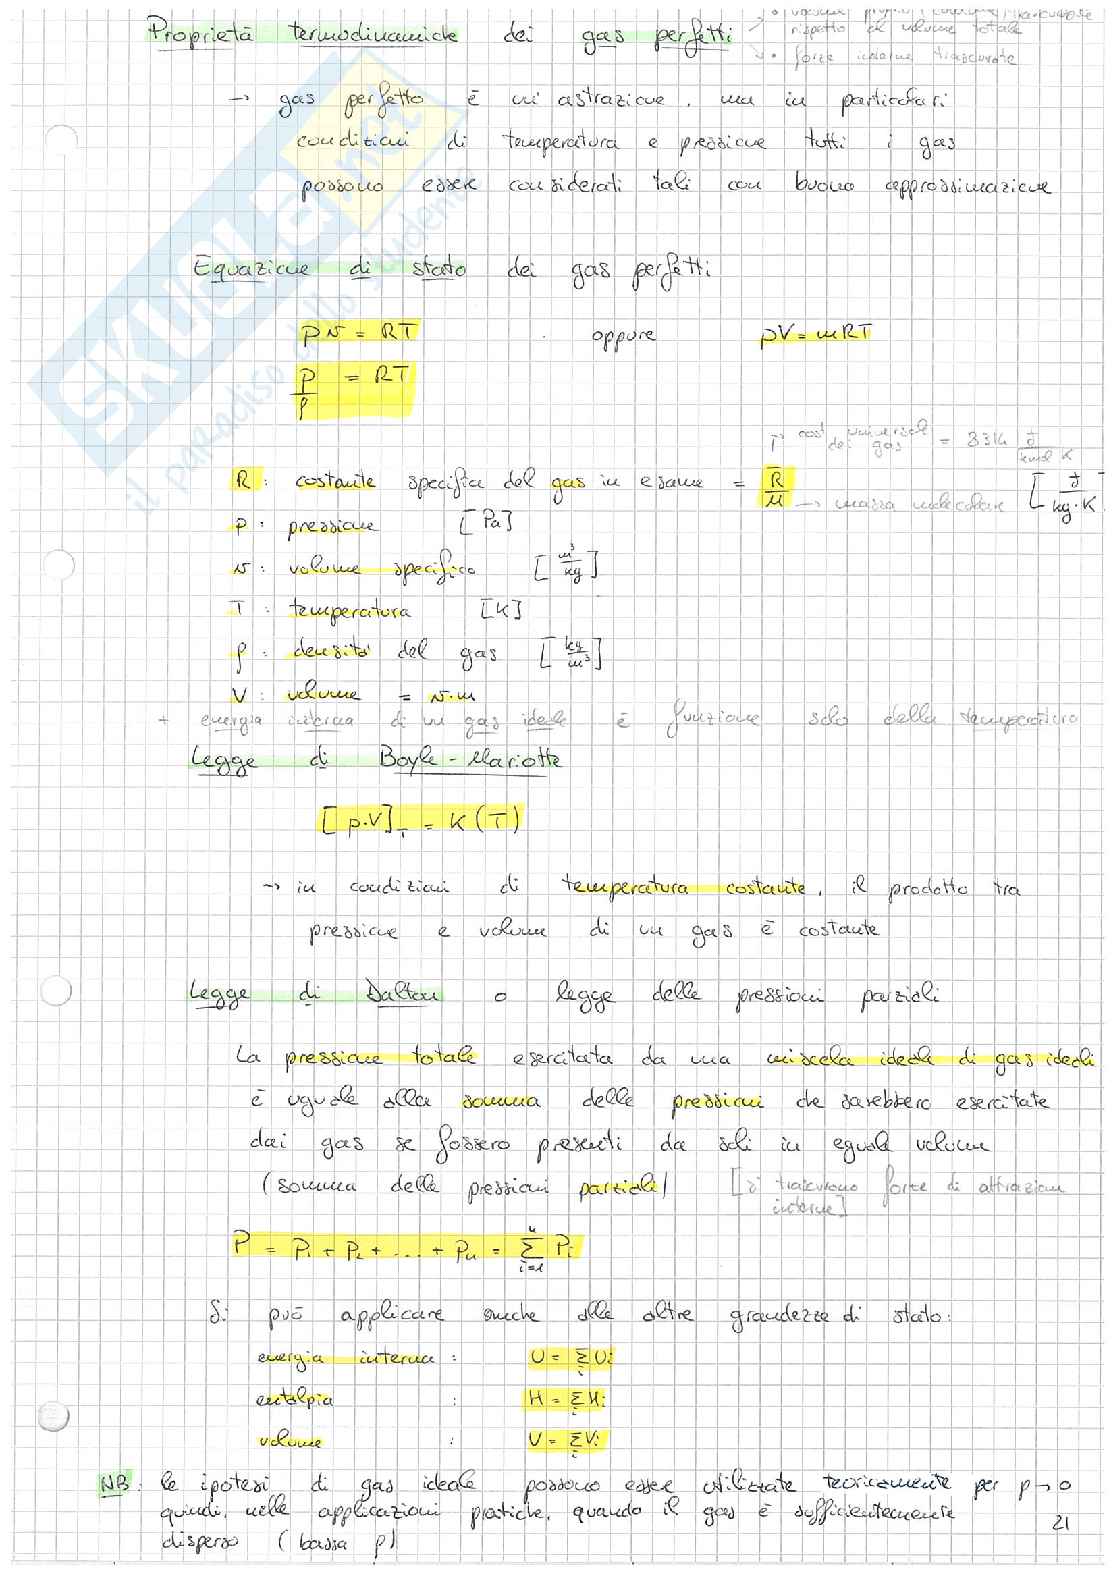 Proprietà termodinamiche dei gas perfetti
rispetto al volume totale
• forze interne trascurate
→ gas perfetto è un'astrazione, ma in particolari
condizioni di temperatura e pressione tutti i gas
possono essere considerati tali con buona approssimazione
SKUOLA.net
il paradiso dello studente
Equazione di stato dei gas perfetti
pv = RT oppure pV = mRT
p/ρ = RT
cost universale dei gas = 8314 J/kmol K
R : costante specifica del gas in esame = R̄/M → massa molecolare [J/kg·K
p : pressione [Pa]
v : volume specifico [m³/kg]
T : temperatura [K]
ρ : densità del gas [kg/m³]
V : volume = v·m
+ energia interna di un gas ideale è funzione solo della temperatura
Legge di Boyle-Mariotte
[p·V]_T = K(T)
→ in condizioni di temperatura costante, il prodotto tra
pressione e volume di un gas è costante
Legge di Dalton o legge delle pressioni parziali
La pressione totale esercitata da una miscela ideale di gas ideali
è uguale alla somma delle pressioni che sarebbero esercitate
dai gas se fossero presenti da soli in eguale volume
(somma delle pressioni parziali) [si trascurano forze di attrazioni
interne]
P = P₁ + P₂ + .... + Pn = Σ_{i=1}^{n} Pi
Si può applicare anche alle altre grandezze di stato:
energia interna : U = Σ_i Ui
entalpia : H = Σ_i Hi
volume : V = Σ_i Vi
NB: le ipotesi di gas ideale possono essere utilizzate teoricamente per p→0
quindi, nelle applicazioni pratiche, quando il gas è sufficientemente
disperso (bassa ρ)
21